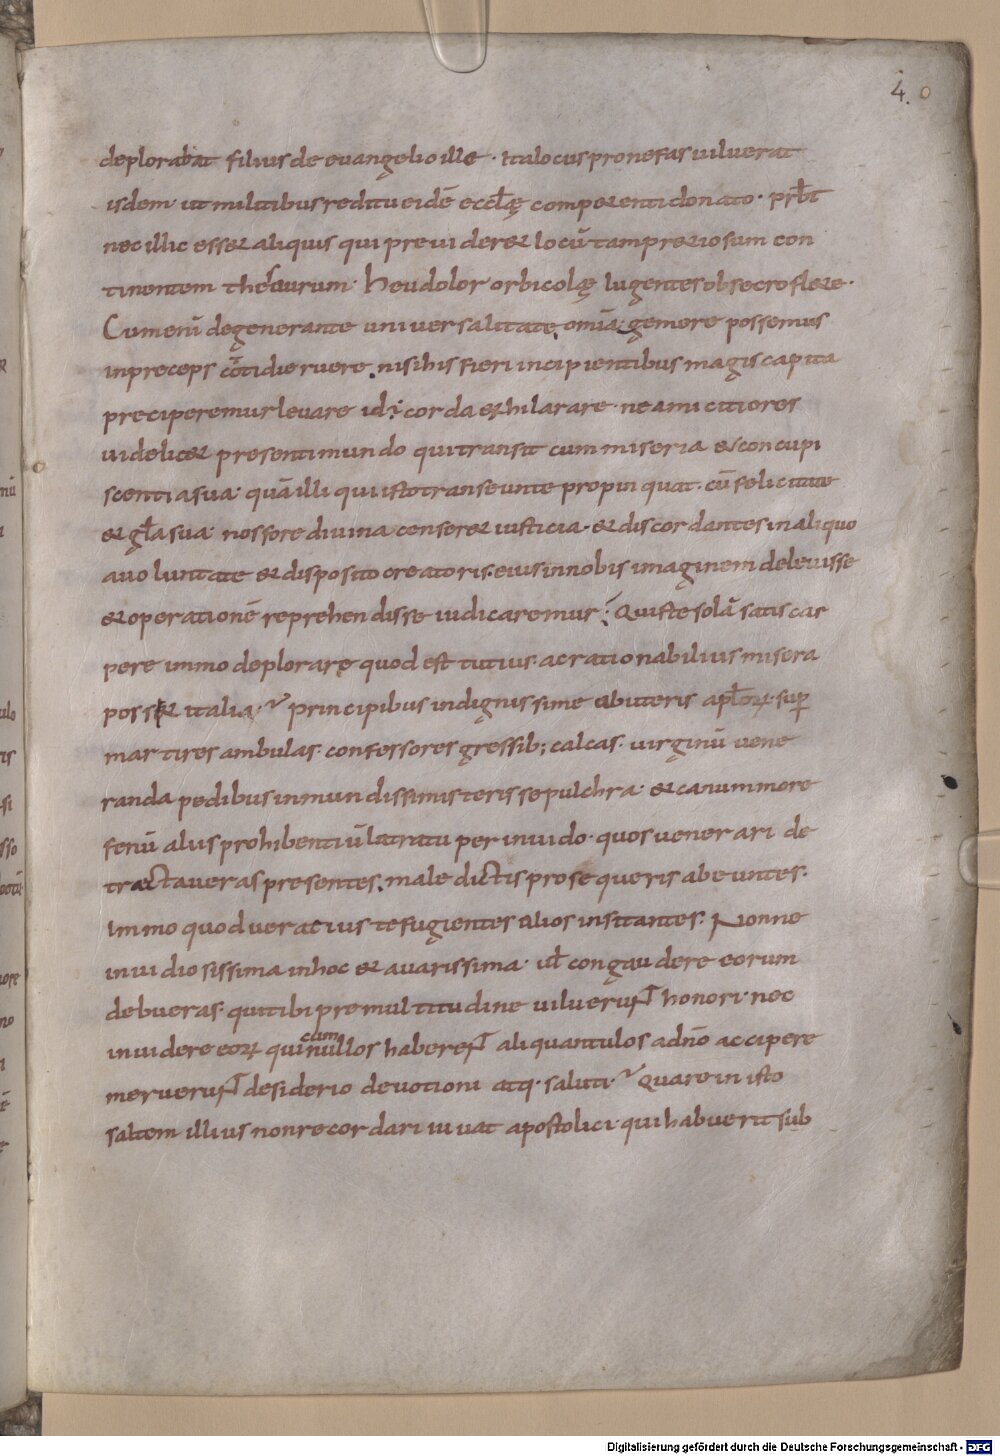 4.
deplorabat filius de evangelio ille · Ita locus pro nefas viluerat
isdem · ut militibus redditu eidē eccłę competenti donato · prƀt
nec illic esset aliquis qui previderet locū tam pretiosum con
tinentem thesaurum · Heu dolor orbicolę lugentes obsecro flete ·
Cum enī degenerante universalitate omīa gemere possemus
in preceps cottidie ruere, nisi his fieri incipientibus magis capita
preciperemur levare id÷ corda et hilarare · ne amicitiores
videlicet presenti mundo qui transit cum miseria et concupi
scentia sua · quā illi qui isto transeunte propinquat · cū felicitate
et gła sua · nos fore divina censeret iusticia · et discordantes in aliquo
a voluntate et disposito creatoris eius in nobis imaginem delevisse
et operationē reprehendisse iudicaremur; Qui ste solā satis car
pere immo deplorare quod est tutius · ac rationabilius misera
posset italia? Principibus indignissime abuteris apłoꝝ · suꝑ
martires ambulas · confessores gressib; calcas · virginū vene
randa pedibus inmundissimis teris sepulchra · et canum more
fenū aliis prohibentiū latratu per invido · quos venerari de
trectaveras presentes, maledictis prosequeris abeuntes ·
Immo quod veracius te fugientes alios insitantes · Nonne
invidiosissima in hoc et avarissima · vł congaudere eorum
debueras · qui tibi pre multitudine viluerunt honori · nec
invidere eoꝝ qui cum nullos haberent aliquantulos a dn̄o accipere
meruerunt desiderio devotioni atq · saluti? Quare in isto
saltem illius non recordari iuvat apostolici · qui habuerit sub
Digitalisierung gefördert durch die Deutsche Forschungsgemeinschaft - DFG